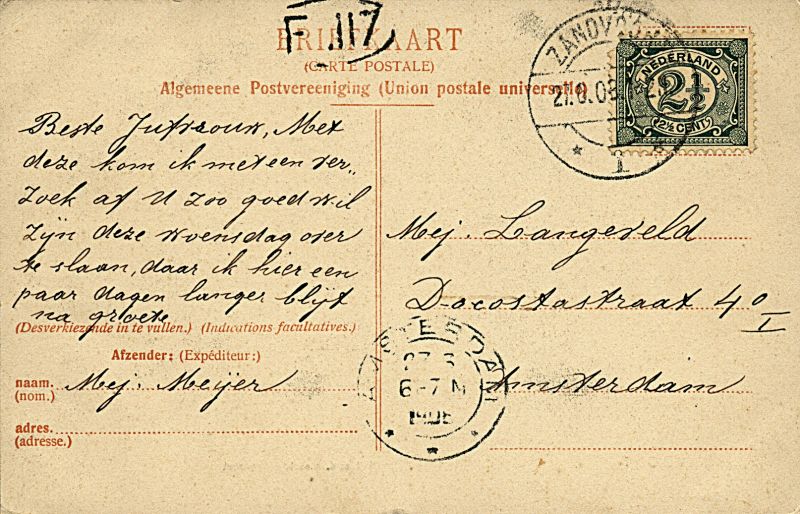 F 117
BRIEFKAART
(CARTE POSTALE)
Algemeene Postvereeniging (Union postale universelle)
ZANDVO
27.8.08
1
NEDERLAND
2½
2½ CENT
Beste Jufvrouw, Met
deze kom ik met een ver„
zoek af U zoo goed wil
zijn deze woensdag over
te slaan, daar ik hier een
paar dagen langer blijf
na groete
(Desverkiezende in te vullen.) (Indications facultatives.)
Afzender: (Expéditeur:)
naam. Mej. Meijer
(nom.)
adres.
(adresse.)
Mej. Langeveld
Dacostastraat 4⁰ I
Amsterdam
AMSTERDAM
6-7 N